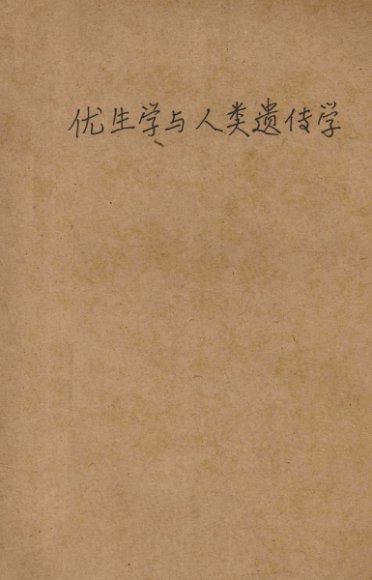 优生学与人类遗传学